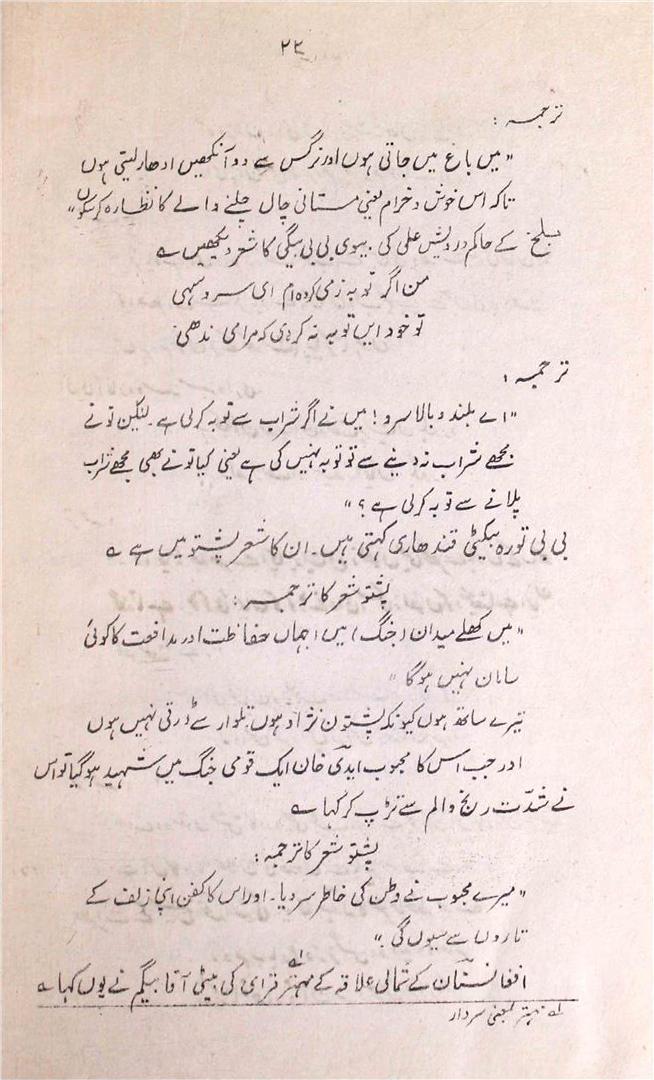 ۲۲
ترجمہ :
"میں باغ میں جاتی ہوں اور نرگس سے دو آنکھیں ادھار لیتی ہوں
تاکہ اس خوش خرام یعنی مستانی چال چلنے والے کا نظارہ کر سکوں"
بلخ کے حاکم درویش علی کی بیوی بی بی بیگی کا شعر دیکھیں ے
من اگر توبہ زمی کردہ ام ای سرو سہی
تو خود ایں توبہ نہ کردی کہ مرا می ندھی
ترجمہ :
"اے بلند و بالا سرو! میں نے اگر شراب سے توبہ کر لی ہے۔ لیکن تو نے
مجھے شراب نہ دینے سے تو توبہ نہیں کی ہے یعنی کیا تو نے بھی مجھے شراب
پلانے سے توبہ کر لی ہے؟"
بی بی تورہ بیکیٹی قندھاری کہتی ہیں۔ ان کا شعر پشتو میں ہے ے
پشتو شعر کا ترجمہ :
"میں کھلے میدان (جنگ) میں (جہاں حفاظت اور مدافعت کا کوئی
سامان نہیں ہوگا"
تیرے ساتھ ہوں کیونکہ پشتون نژاد ہوں تلوار سے ڈرتی نہیں ہوں
اور جب اس کا محبوب ایدی خان ایک قومی جنگ میں شہید ہو گیا تو اس
نے شدّت رنج و الم سے تڑپ کر کہا ے
پشتو شعر کا ترجمہ :
"میرے محبوب نے وطن کی خاطر سر دیا۔ اور اس کا کفن اپنی زلف کے
تاروں سے سیوں گی۔"
افغانستان کے شمالی علاقہ کے مہتر لے قرای کی بیٹی آقا بیگم نے یوں کہا ے
لے مہتر بمعنی سردار